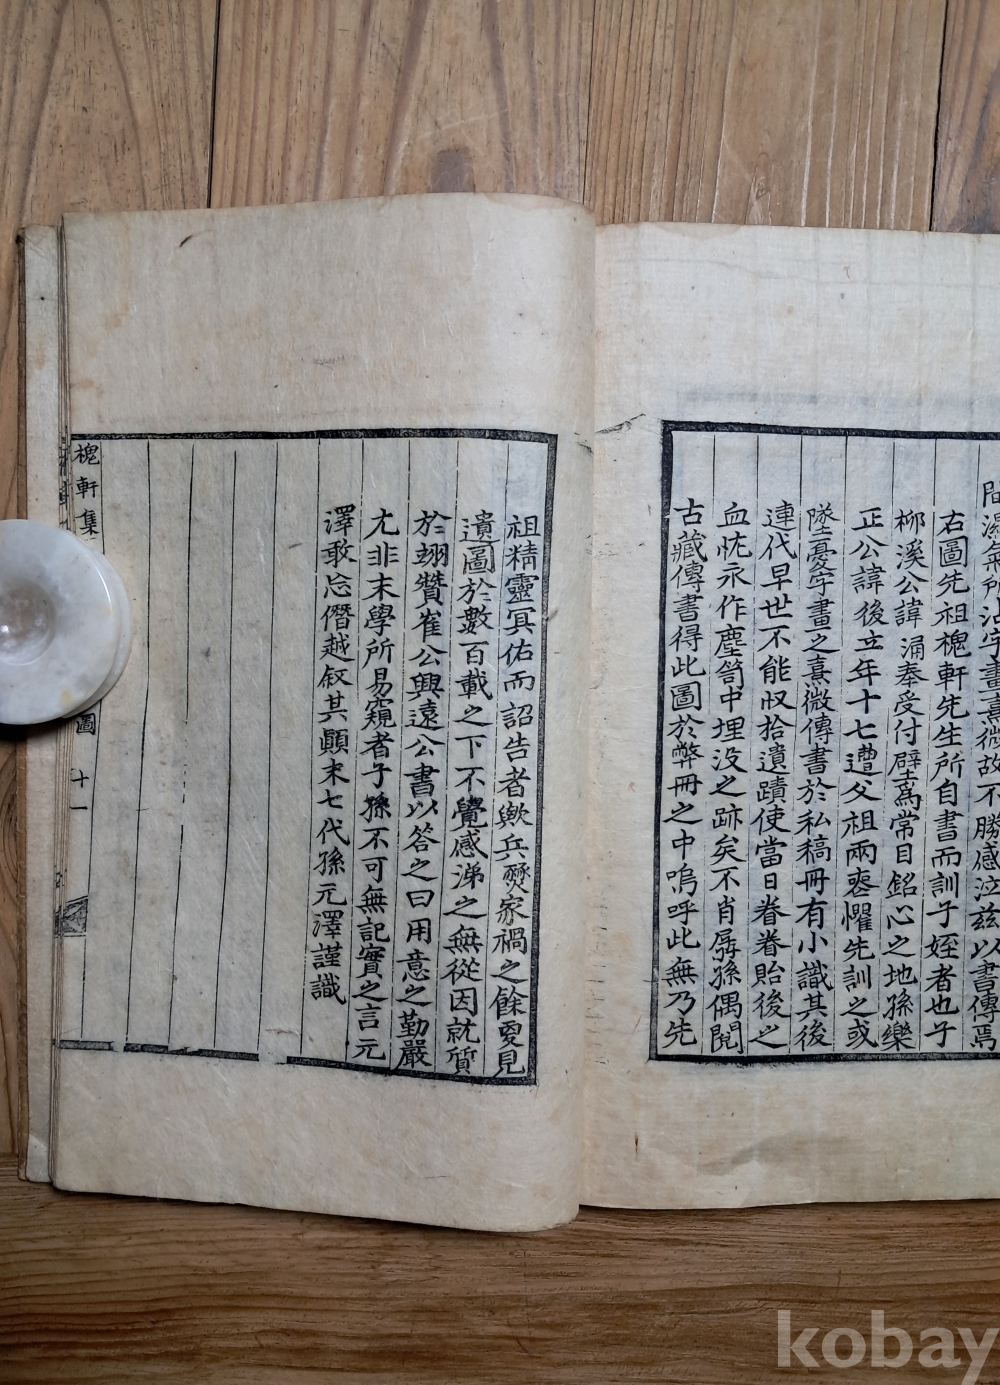 濕氣所沾字畫熹微故不勝感泣玆以書傳焉
右圖先祖槐軒先生所自書而訓子姪者也子
柳溪公諱涌奉受付壁爲常目銘心之地孫樂
正公諱後立年十七遭父祖兩喪懼先訓之或
墜憂字畫之熹微傳書於私稿冊有小識其後
連代早世不能収拾遺蹟使當日眷眷貽後之
血忱永作塵笥中埋没之跡矣不肖孱孫偶閱
古藏傳書得此圖於弊冊之中嗚呼此無乃先
祖精靈冥佑而詔告者歟兵燹家禍之餘夏見
遺圖於數百載之下不覺感涕之無從因就質
於翊贊崔公興遠公書以答之曰用意之勤嚴
尤非末學所易窺者子孫不可無記實之言元
澤敢忘僭越叙其顚末七代孫元澤謹識
槐軒集
圖
十一
kobay